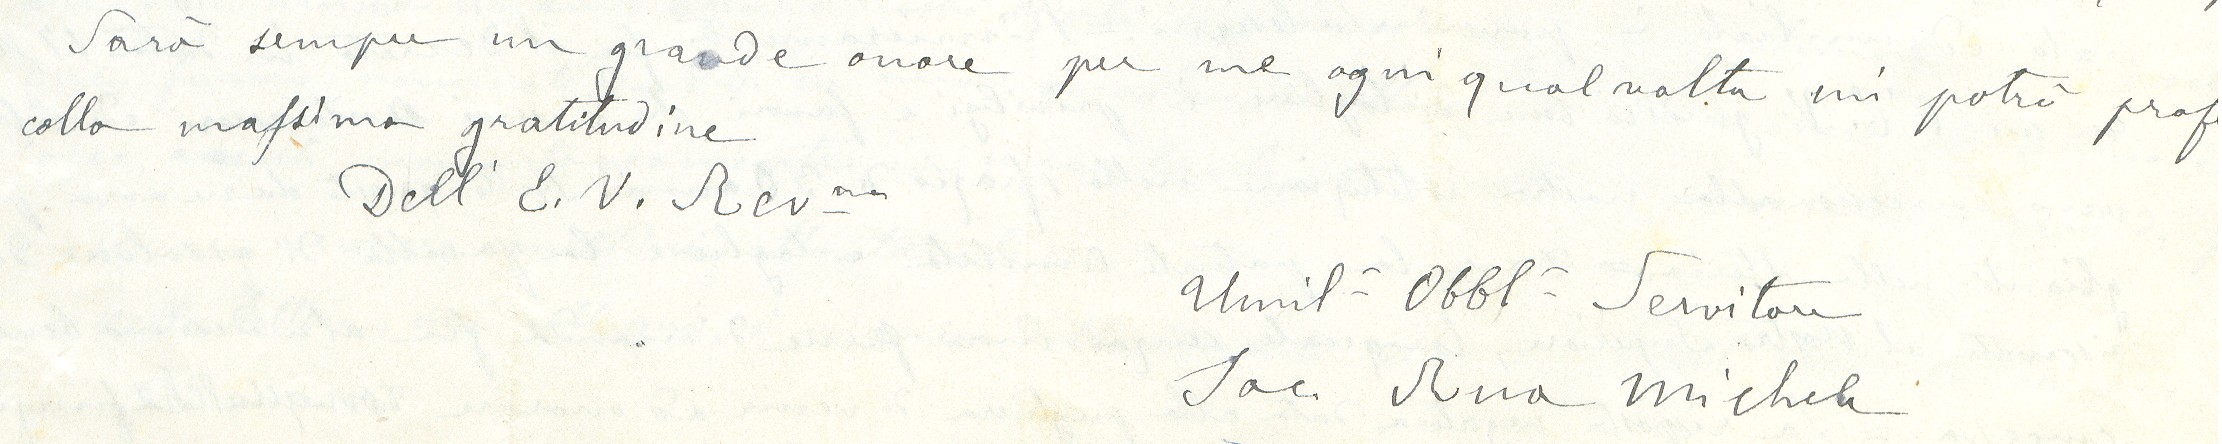 Sarà sempre un grande onore per me ogni qual volta mi potrò prof
colla massima gratitudine
Dell' E. V. Rev.ma
Umil. Obbl. Servitore
Sac. Rua Michele